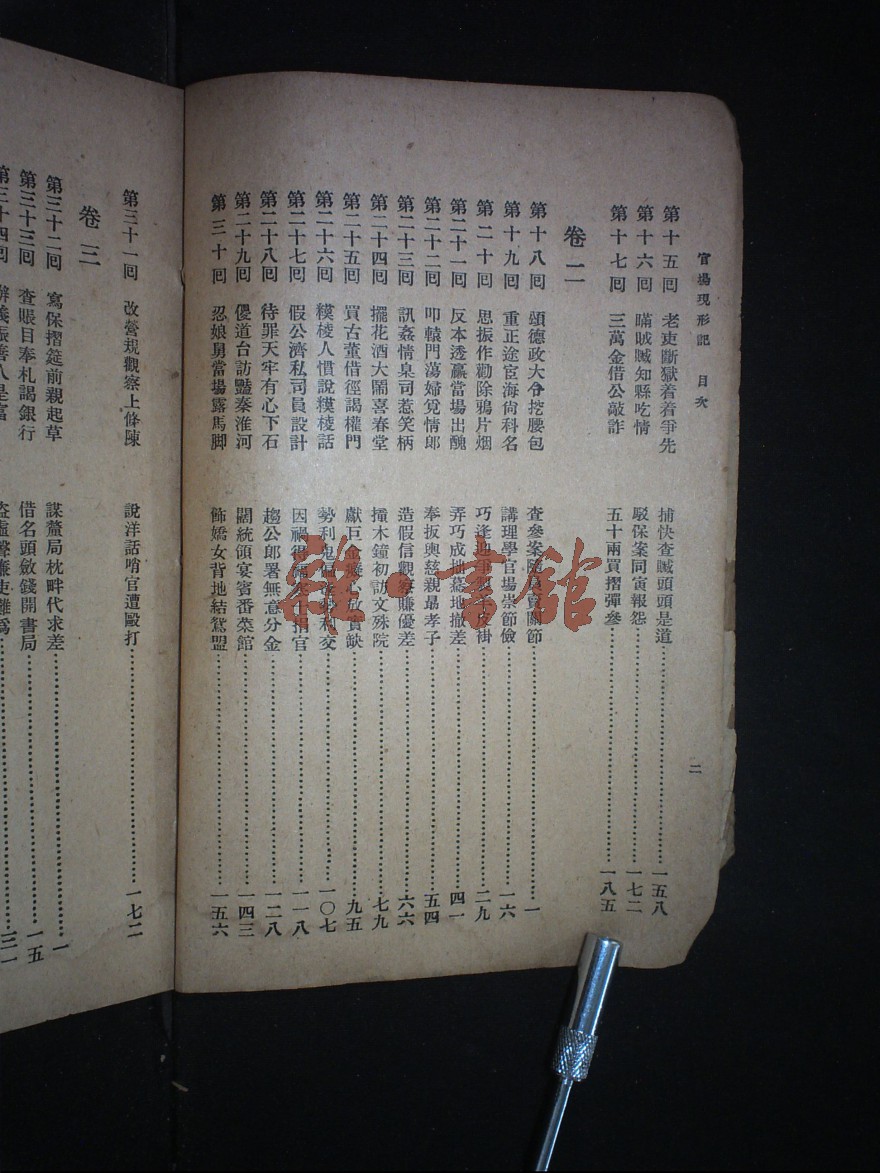 官場現形記 目次
二
第十五回 老吏斷獄着着爭先 捕快查贓頭頭是道 一五八
第十六回 瞞賊贓知縣吃情 駁保案同寅報怨 一七二
第十七回 三萬金借公敲詐 五十兩買摺彈參 一八五
卷二
第十八回 頌德政大令挖腰包 查參案隨員賣關節 一
第十九回 重正途宦海尙科名 講理學官場崇節儉 一六
第二十回 思振作勸除鴉片烟 巧逢迎爭製羊皮褂 二九
第二十一回 反本透贏當場出醜 弄巧成拙驀地撤差 四一
第二十二回 叩轅門蕩婦覓情郎 奉板輿慈親勗孝子 五四
第二十三回 訊姦情臬司惹笑柄 造假信觀察賺優差 六六
第二十四回 擺花酒大鬧喜春堂 撞木鐘初訪文殊院 七九
第二十五回 買古董借徑謁權門 獻巨金癡心放實缺 九五
第二十六回 糢棱人慣說糢棱話 勢利鬼偏逢勢利交 一〇七
第二十七回 假公濟私司員設計 因禍得福寒士捐官 一一八
第二十八回 待罪天牢有心下石 趨公郎署無意分金 一二八
第二十九回 儍道台訪豔秦淮河 闊統領宴賓番菜館 一四三
第三十回 忍娘舅當場露馬脚 飾嬌女背地結鴛盟 一五六
第三十一回 改營規觀察上條陳 說洋話哨官遭毆打 一七二
卷三
第三十二回 寫保摺筵前親起草 謀釐局枕畔代求差 一
第三十三回 查賬目奉札謁銀行 借名頭斂錢開書局 一五
第三十四回 辦義賑善人是富 盜虛聲廉吏難爲 三一
雜·書館